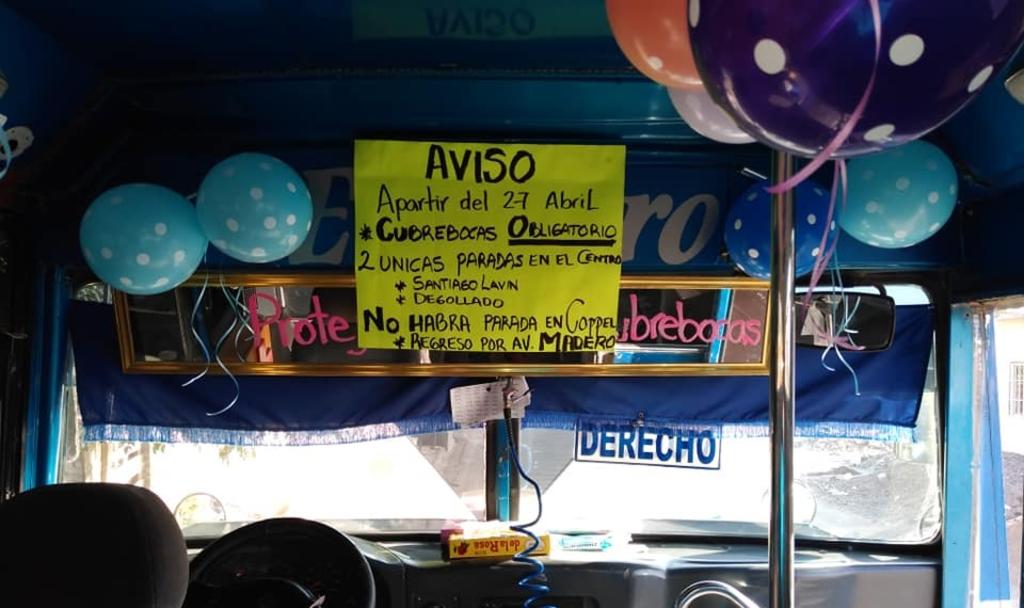 AVISO
Apartir del 27 AbriL
* CUBREBOCAS OBLIGATORIO
2 UNICAS PARADAS EN EL CENTRO
* SANTIAGO LAVIN
* DEGOLLADO
NO HABRA PARADA EN COPPEL
* REGRESO POR AV. MADERO
Prote
ubrebocas
DERECHO
de la Rosa